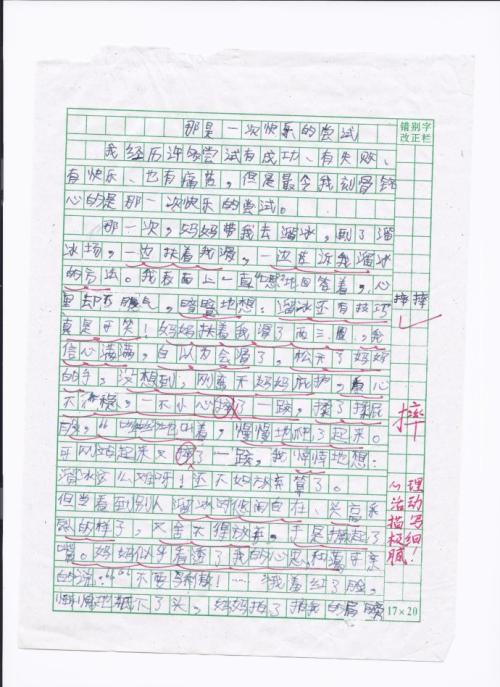 那是一次快乐的尝试
错别字
改正栏
我经历许多尝试有成功、有失败、
有快乐、也有痛苦,但是最令我刻骨铭
心的是那一次快乐的尝试。
那一次,妈妈带我去溜冰,到了溜
冰场,一边扶着我滑,一边告诉我溜冰
的方法。我表面上一直地回答着,心
里却不服气,暗暗地想:溜冰还有技巧
真是可笑!妈妈扶着我滑了两三圈,我
信心满满,自以为会溜了,松开了妈妈
的手,没想到,刚离开妈妈,心
不稳,一不小心摔了一跤,揉了揉屁
股,地叫着,慢慢地爬了起来。
可以站起来又摔了一跤,我地想:
溜冰这么难,还不如放弃算了。
但当看到别人溜冰时很闲自在、兴高采
烈的样子,又舍不得放弃。于是
。妈妈似乎看透了我的心思
的说:“不要!……”我着红了脸,
地低下了头,妈妈拍了拍我的肩膀
摔摔
摔
心理
活动
描写
极细
腻!
17×20